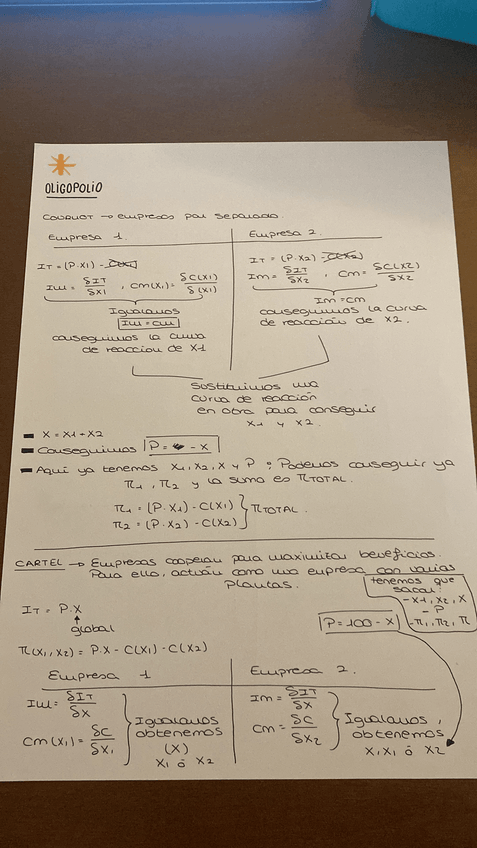 OLIGOPOLIO
COURNOT → empresas por separado.
Empresa 1.
IT = (P·X1) - C(X1)
IM = δIT/δX1 , CM(X1) = δC(X1)/δ(X1)
Igualamos
IM = CM
conseguimos la curva
de reacción de X1
Empresa 2.
IT = (P·X2) - C(X2)
IM = δIT/δX2 , CM = δC(X2)/δX2
IM = CM
conseguimos la curva
de reacción de X2.
Sustituimos una
curva de reacción
en otra para conseguir
X1 y X2.
- X = X1 + X2
- Conseguimos P = - X
- Aquí ya tenemos X1, X2, X y P ; Podemos conseguir ya
π1, π2 y la suma es πTOTAL.
π1 = (P·X1) - C(X1)
π2 = (P·X2) - C(X2) } πTOTAL.
CARTEL → Empresas cooperan para maximizar beneficios.
Para ello, actúan como una empresa con varias
plantas.
tenemos que
sacar:
- X1, X2, X
- P
- π1, π2, π
IT = P.X
↑
global
P = 100 - X
π(X1, X2) = P.X - C(X1) - C(X2)
Empresa 1
IM = δIT/δX
CM(X1) = δC/δX1
Igualamos
obtenemos
(X)
X1 ó X2
Empresa 2.
IM = δIT/δX
CM = δC/δX2
Igualamos,
obtenemos
X, X1 ó X2